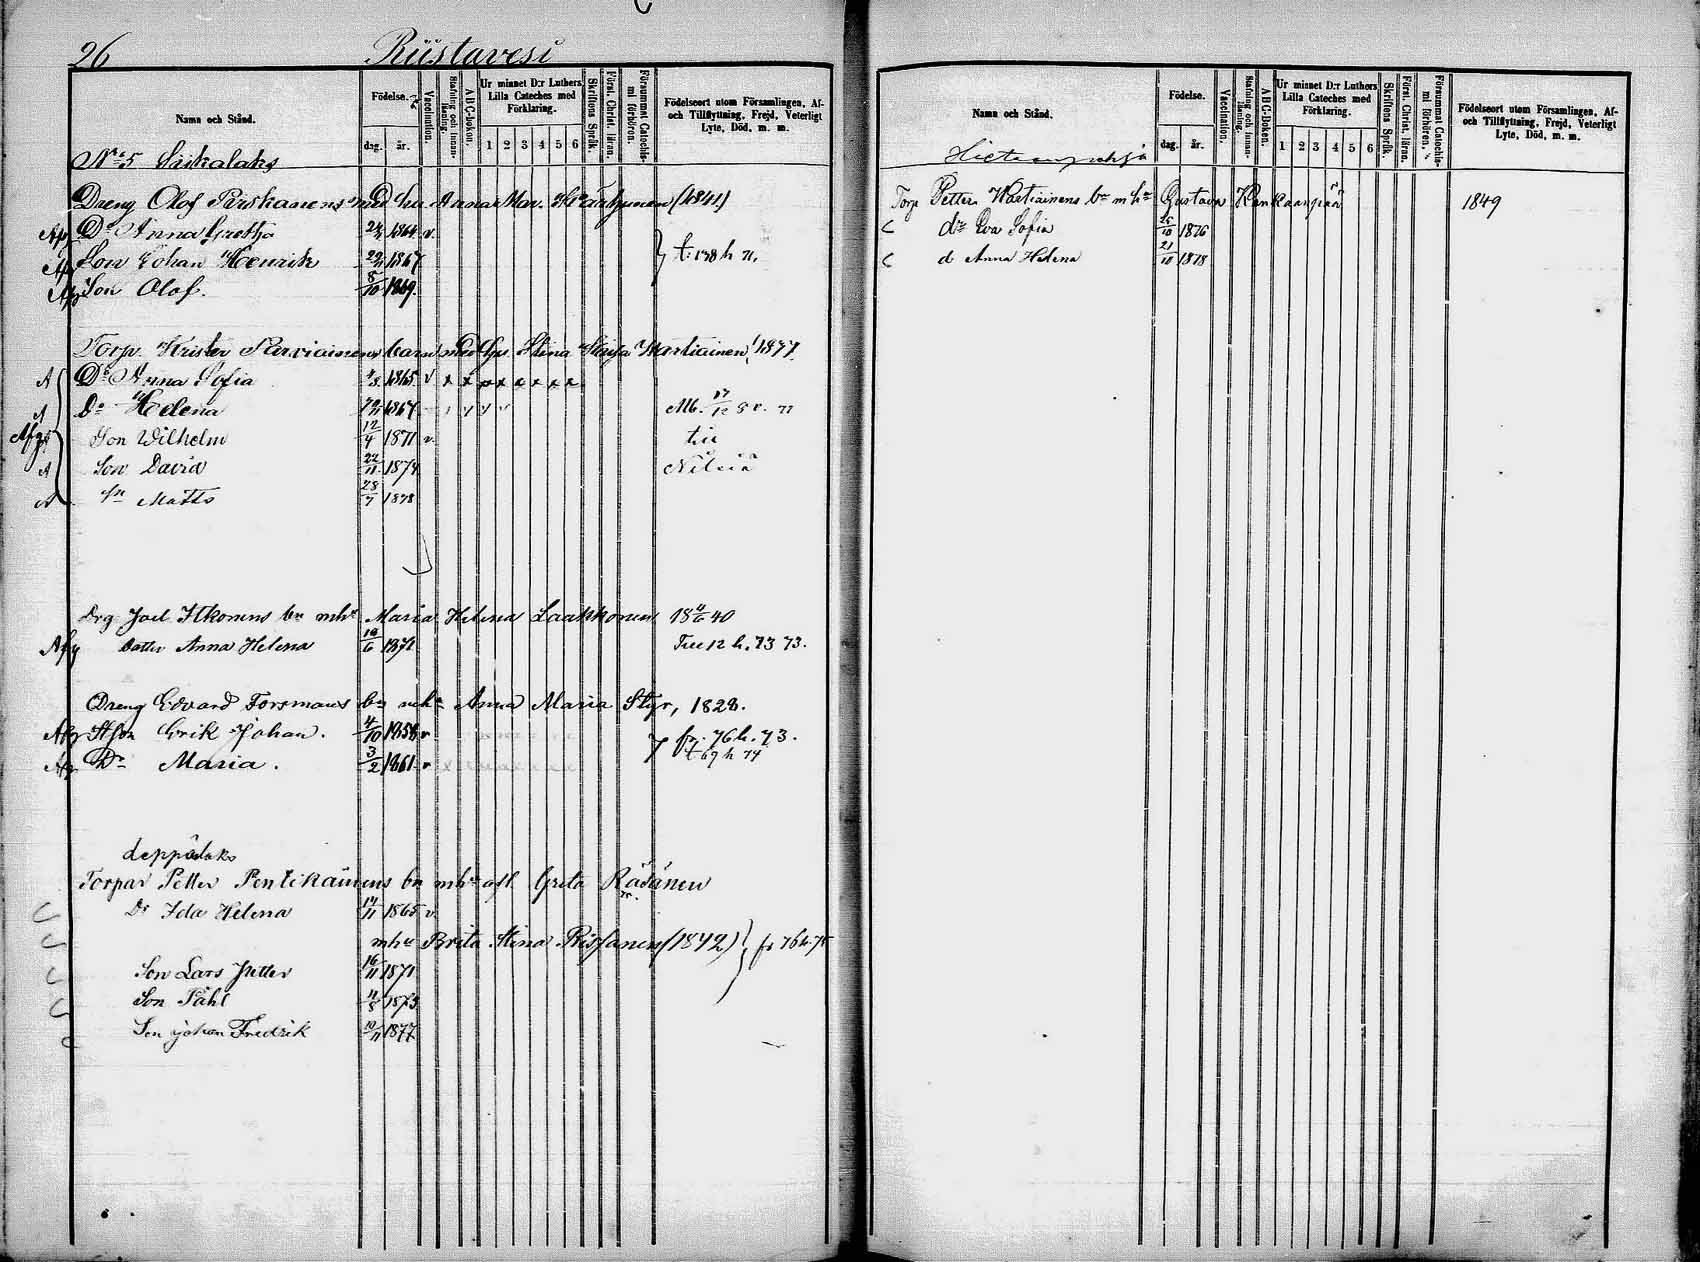 26 Riistavesi
Namn och Stånd.
Födelse.
dag. år.
Vaccination.
Stafning och innanläsning.
A B C-boken.
Ur minnet D:r Luthers Lilla Cateches med Förklaring.
1 2 3 4 5 6
Skriftens Språk.
Först. Christ. läran.
Försummat Catechismi förhören.
Födelseort utom Församlingen, Af- och Tillflyttning, Frejd, Veterligt Lyte, Död, m. m.
No 5
Dreng Olof med hu. Anna Mar. (1841)
Do Anna Gretha 1864 v.
Son Johan Henrik 1867 138 h 71.
Son Olof. 5/10 1869.
Torp. Krister barn med Hu. Stina Wartiainen, 1877.
A Do Anna Sofia 1865 v x x x x x x x x
A Do Helena 1867
Son Wilhelm 12/4 1871 v. till
A Son David 22/11 1874 Nilsiä
A Matts 28/7 1878
Drg Joel Itkonens bn mhu Maria Helena Laakkonen 18 4/6 40
Afg Datter Anna Helena 1872 Till 12 h. 73 73.
Dreng Edvard Forsmans bn mhu Anna Maria Styr, 1828.
Afg Erik Johan. 4/10 1858 v fr. 76 h. 73.
Afg Do Maria. 3/2 1861 v t 69 h 74
Torpar Petter Pentikäinens bn mhu afl. Greta Räsänen
Dr Ida Helena 14/11 1865 v.
mhu Brita Stina Rissanen (1842) fr 76 h. 75
Son Lars Petter 16/11 1871
Son Påhl 1873
Son Johan Fredrik 10/11 1877
Namn och Stånd.
Födelse.
dag. år.
Vaccination.
Stafning och innanläsning.
A B C-boken.
Ur minnet D:r Luthers Lilla Cateches med Förklaring.
1 2 3 4 5 6
Skriftens Språk.
Först. Christ. läran.
Försummat Catechismi förhören.
Födelseort utom Församlingen, Af- och Tillflyttning, Frejd, Veterligt Lyte, Död, m. m.
Torp Petter Wartiainens bn m hu Gustava Kankaanpää 1849
dr Eva Sofia 1876
d Anna Helena 1878